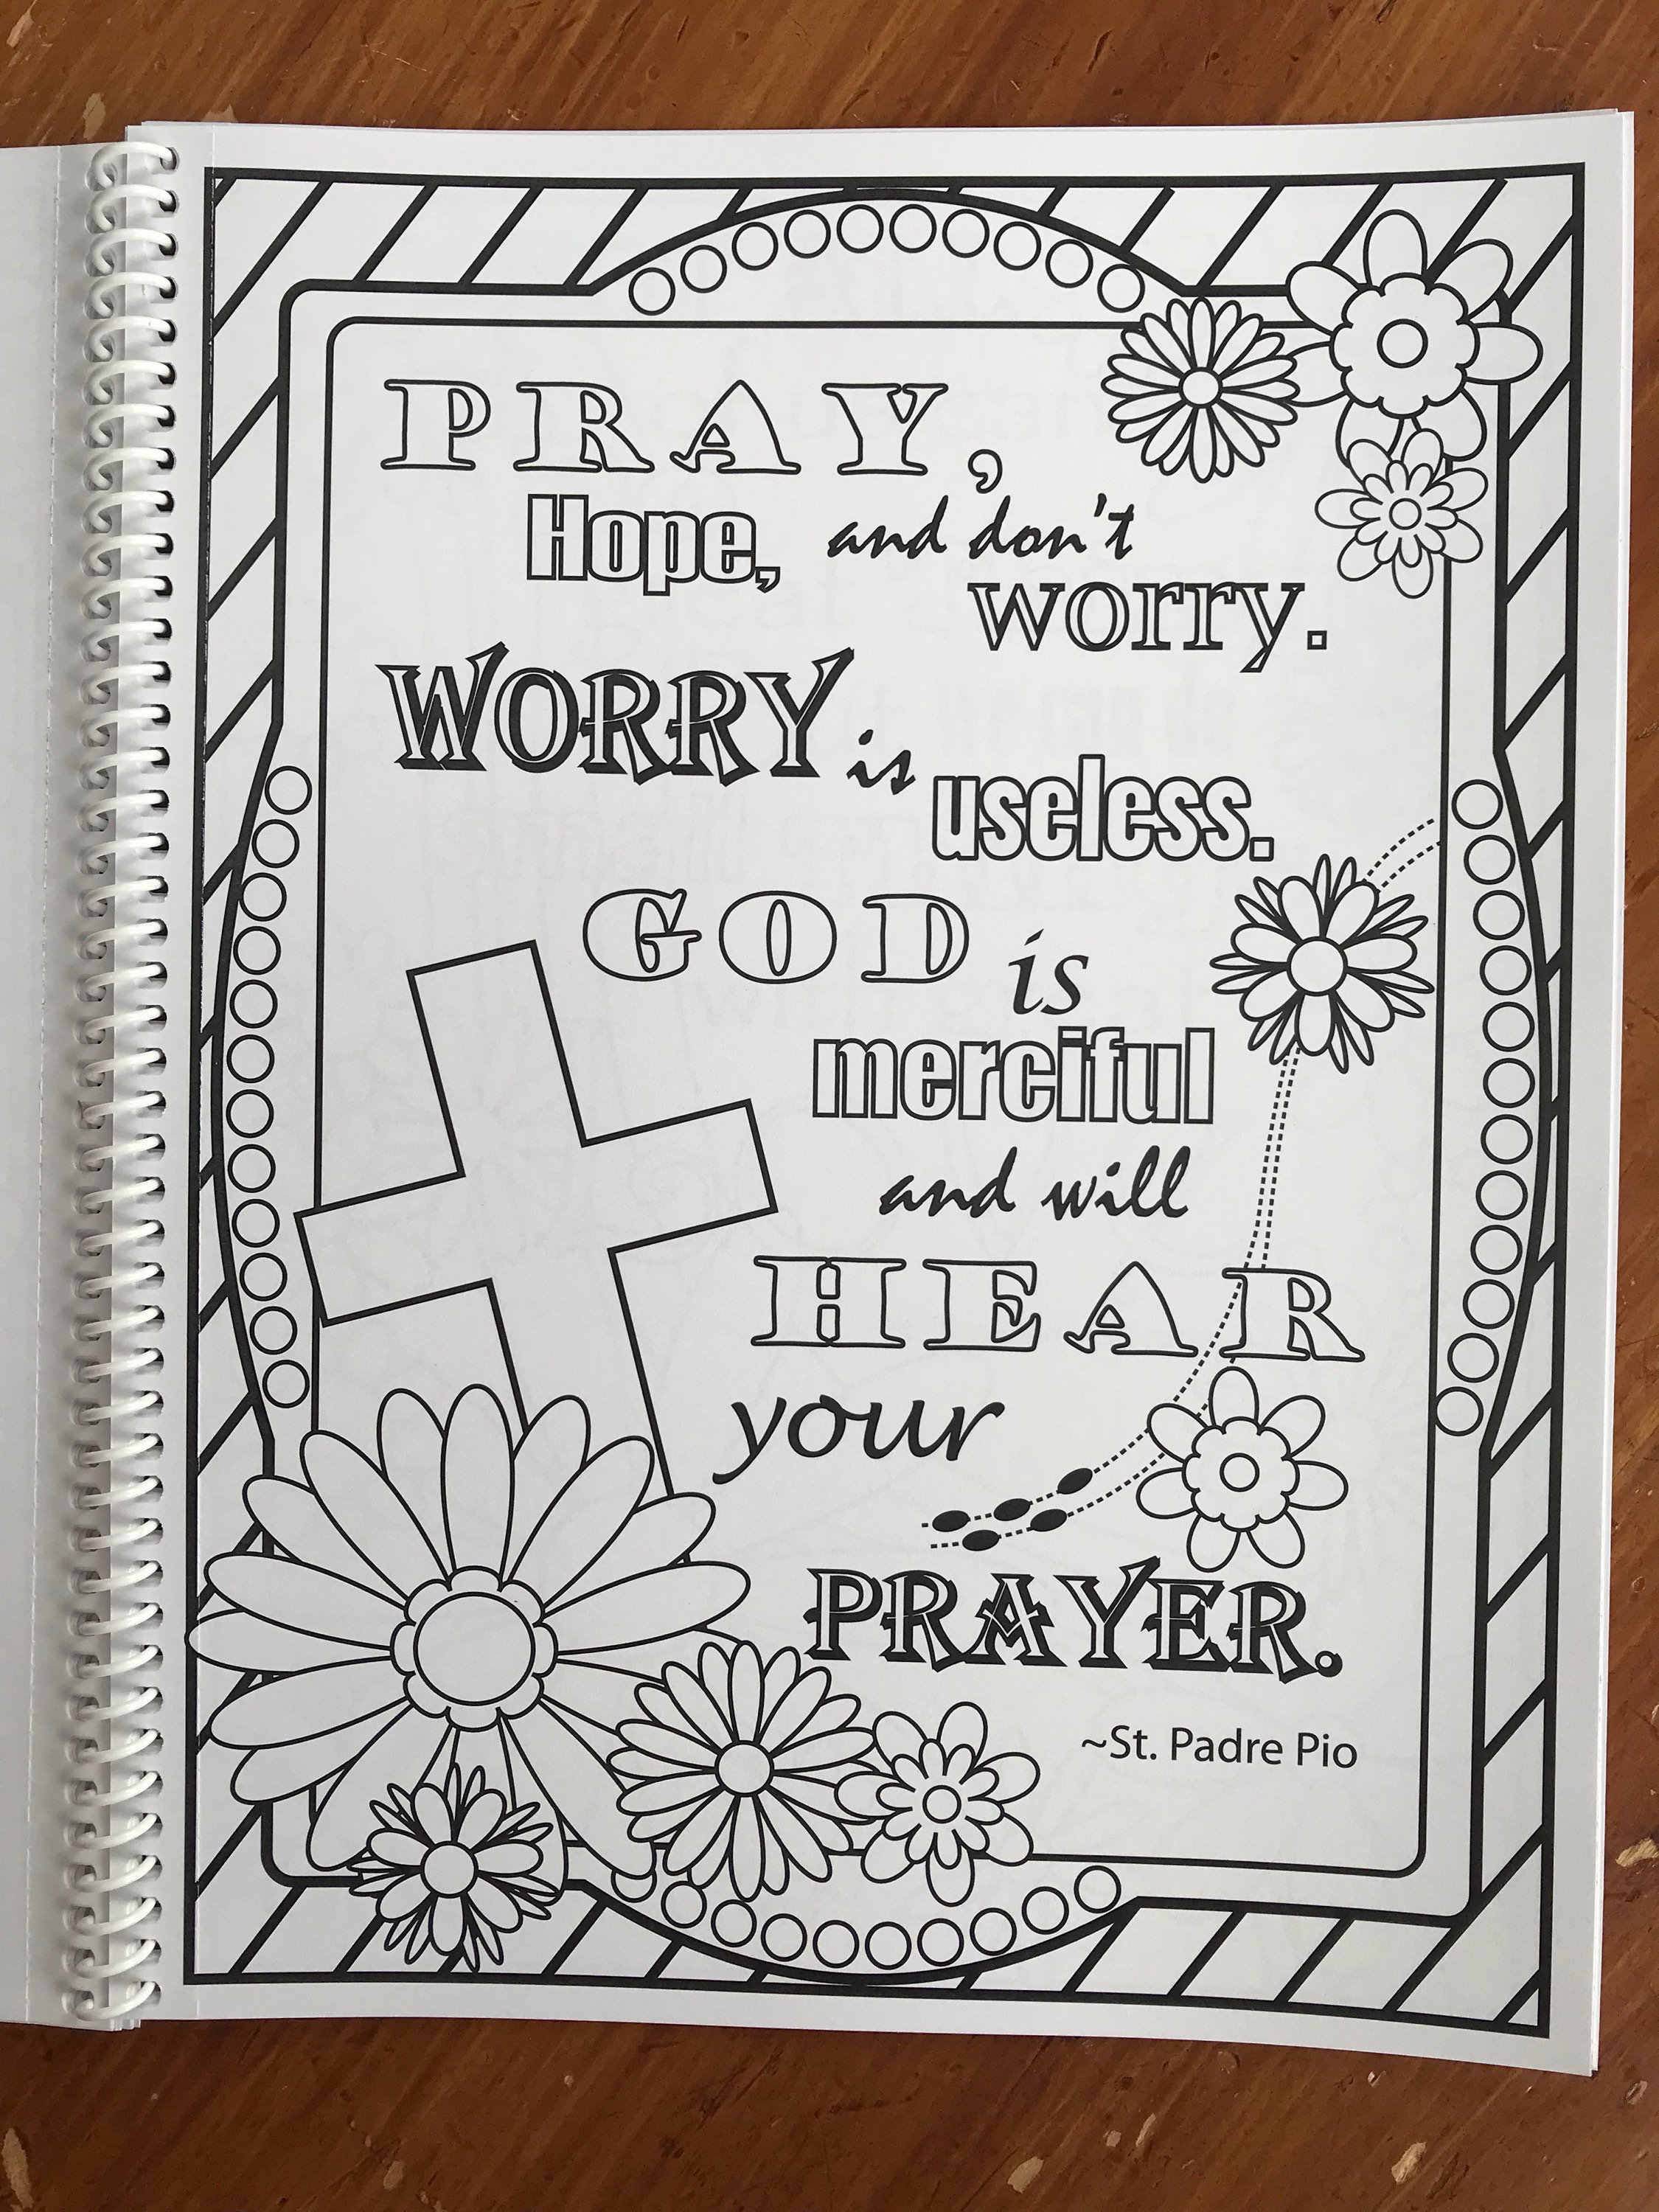 PRAY,
Hope, and don't
worry.
WORRY is
useless.
GOD is
merciful
and will
HEAR
your
PRAYER.
~St. Padre Pio